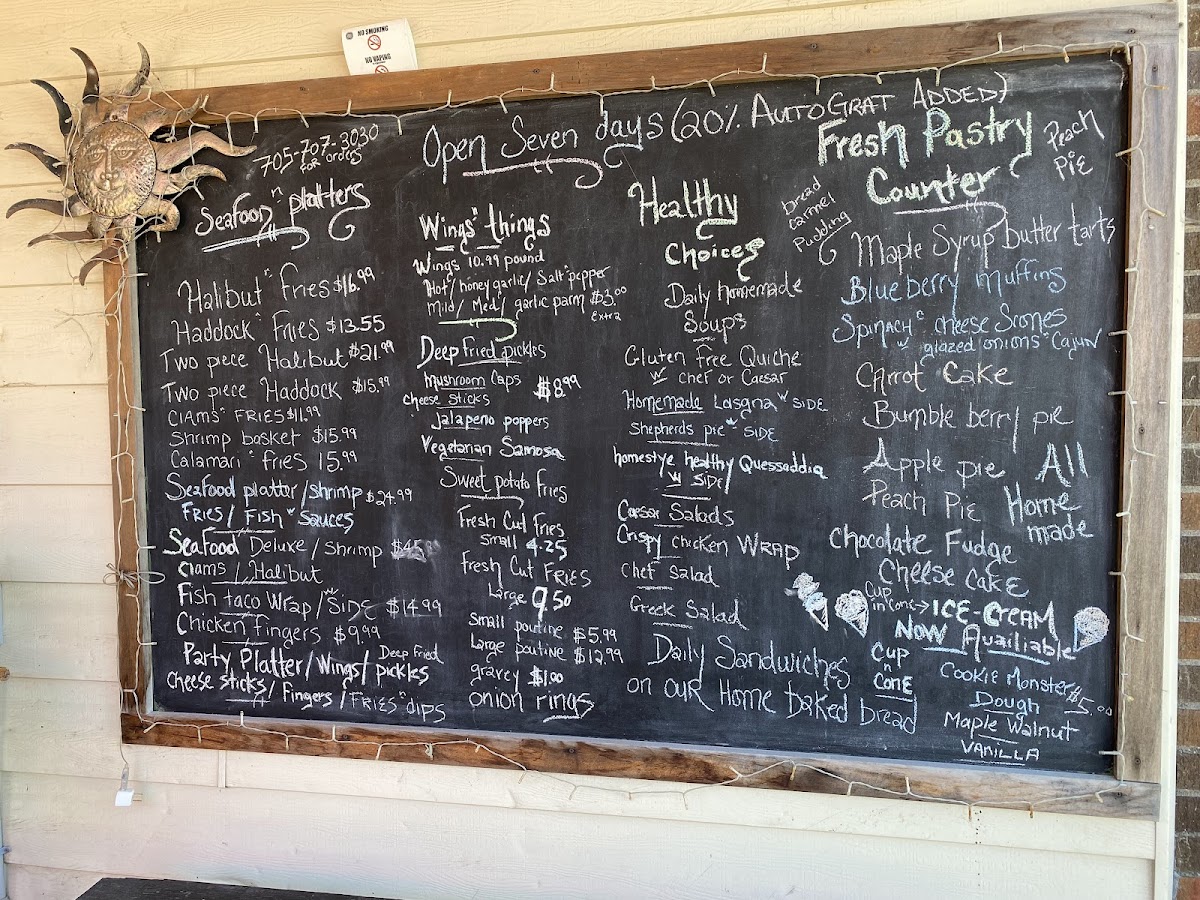 NO SMOKING
NO VAPING
705-707-3030
for orders
Open Seven days (20% AUTOGRAT ADDED)
Seafood "n platters
Halibut "n Fries $16.99
Haddock "n Fries $13.55
Two piece Halibut $21.99
Two piece Haddock $15.99
Clams "n FRIES $11.99
Shrimp basket $15.99
Calamari "n fries 15.99
Seafood platter/shrimp $24.99
FRIES/Fish "n Sauces
Seafood Deluxe/shrimp
Clams/Halibut
Fish taco Wrap/w SIDE $14.99
Chicken fingers $9.99
Party Platter/Wings/Deep Fried pickles
Cheese sticks/Fingers/FRIES "n dips
Wings "n things
Wings 10.99 pound
Hot/honey garlic/Salt "n pepper
Mild/Med/garlic parm $3.00
Extra
Deep Fried pickles
Mushroom Caps
$8.99
Cheese sticks
Jalapeno poppers
Vegetarian Samosa
Sweet potato Fries
Fresh Cut Fries
Small 4.25
Fresh Cut FRIES
Large 9.50
Small poutine $5.99
Large poutine $12.99
gravey $1.00
onion rings
Healthy
Choices
Daily Homemade
Soups
Gluten free Quiche
w chef or Caesar
Homemade Lasgna w SIDE
Shepherds pie w SIDE
homestye healthy Quessaddia
w SIDE/
Caesar Salads
Crispy chicken WRAP
Chef Salad
Greek Salad
Daily Sandwiches
on our Home baked bread
Fresh Pastry
Counter
Peach
Pie
bread
Carmel
Pudding
Maple Syrup butter tarts
Blueberry muffins
SPINACH "n cheese Scones
w glazed onions "n Cajun
CArrot Cake
Bumble berry pie
Apple pie
Peach Pie
All
Home
made
Chocolate Fudge
Cheese CakE
Cup
in cone → ICE-CREAM
Now Availiable
Cup
n
Cone
Cookie Monster
Dough
$5.00
Maple Walnut
VANILLA